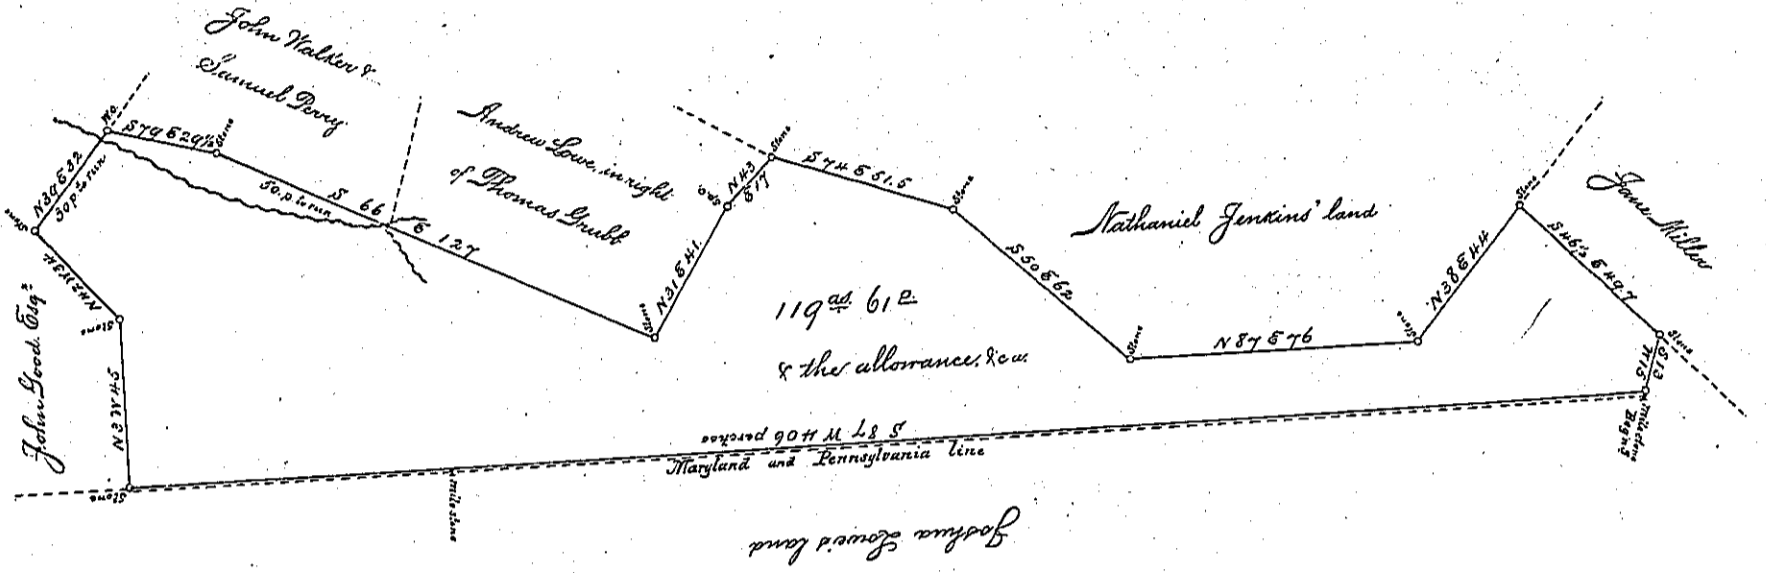 John Walker &
Samuel Perry
Andrew Lowe, in right
of Thomas Grubb
Nathaniel Jenkins' land
Jane Miller
John Good. Esqr
No.
S79 E 29½
Stone
N39 E 32
30 p. to run
Stone
50. p. to run
S 66 E 127
N42 W 34
Stone
N3 W 45
Stone
Stone
N31 E 41.
N43
E 17
Stone
S74 E 51.5
Stone
S50 E 62
Stone
N 87 E 76
Stone
N38 E 44
Stone
S46½ E 49.7
Stone
S13
W 15
milestone
Begin'g
119 as. 61 p.
& the allowance, &c.
S 87 W 406 perches
Maryland and Pennsylvania line
milestone
Joshua Lowe's land